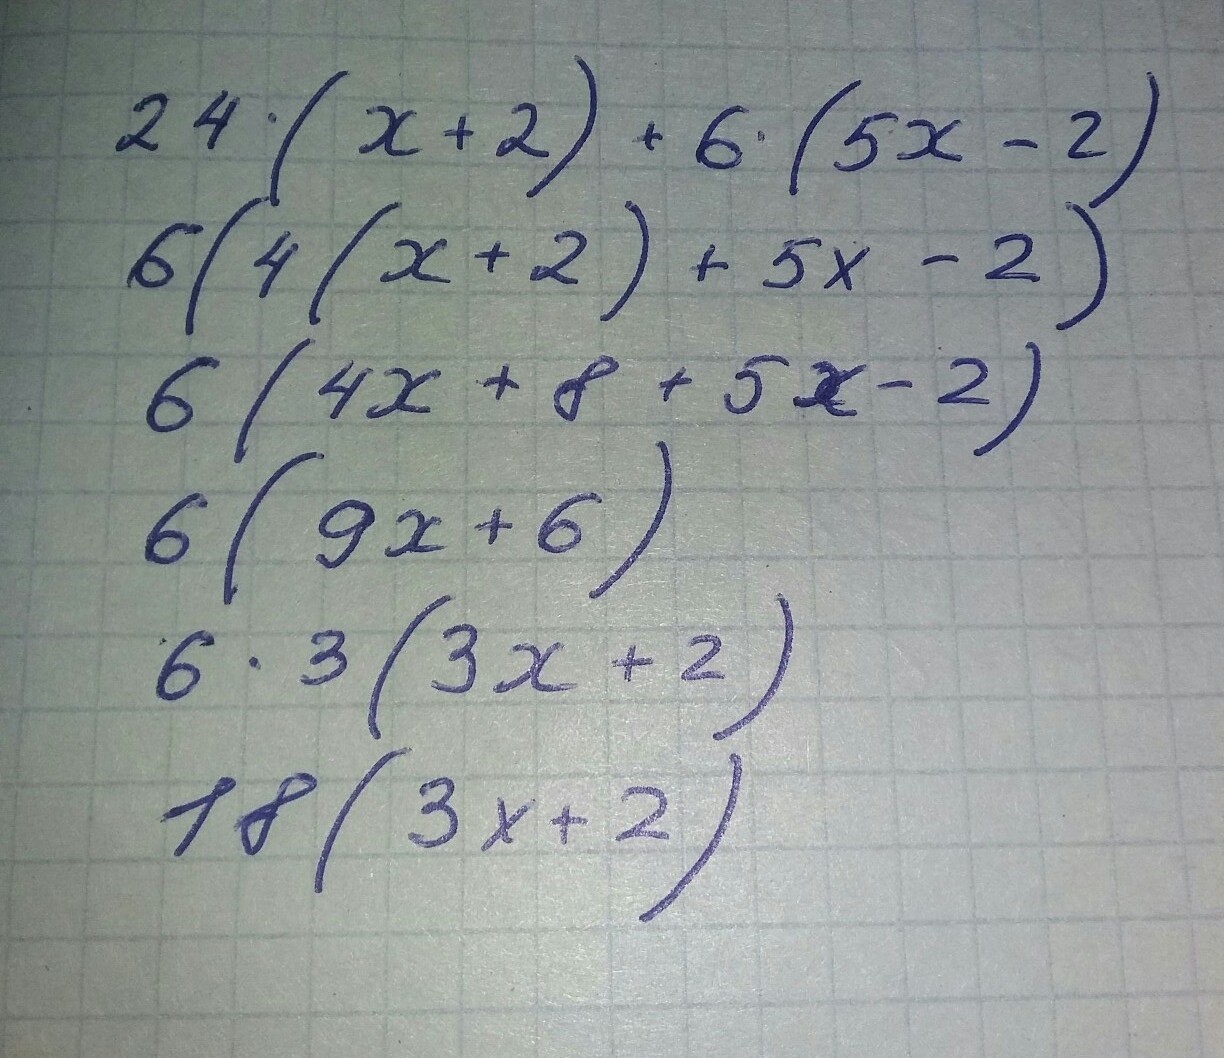 24·(x+2)+6·(5x-2)
6(4(x+2)+5x-2)
6(4x+8+5x-2)
6(9x+6)
6·3(3x+2)
18(3x+2)